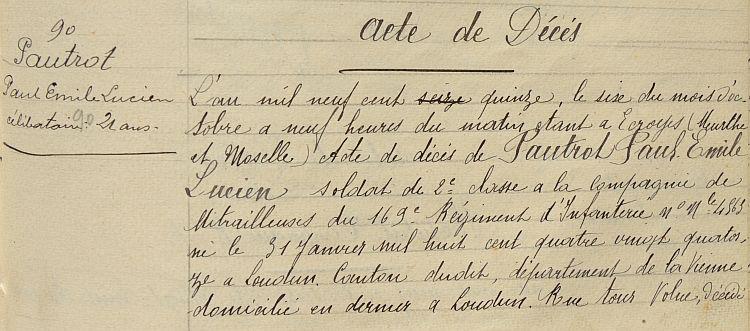 Acte de Décés
90
Pautrot
Paul Emile Lucien
célibataire 90 21 ans.
L'an mil neuf cent seize quinze, le sixe du mois d'oc
tobre a neuf heures du matin etant a Ecroyes (Meurthe
et Moselle) Acte de décés de Pautrot Paul Emile
Lucien soldat de 2e classe a la Compagnie de
Mitrailleuses du 169e Régiment d'Infanterie no Mle 4863
né le 31 Janvier mil huit cent quatre vingt quator
ze a Loudun. Canton dudit, département de la Vienne
domicilié en dernier a Loudun. Rue tour Volue, décédé